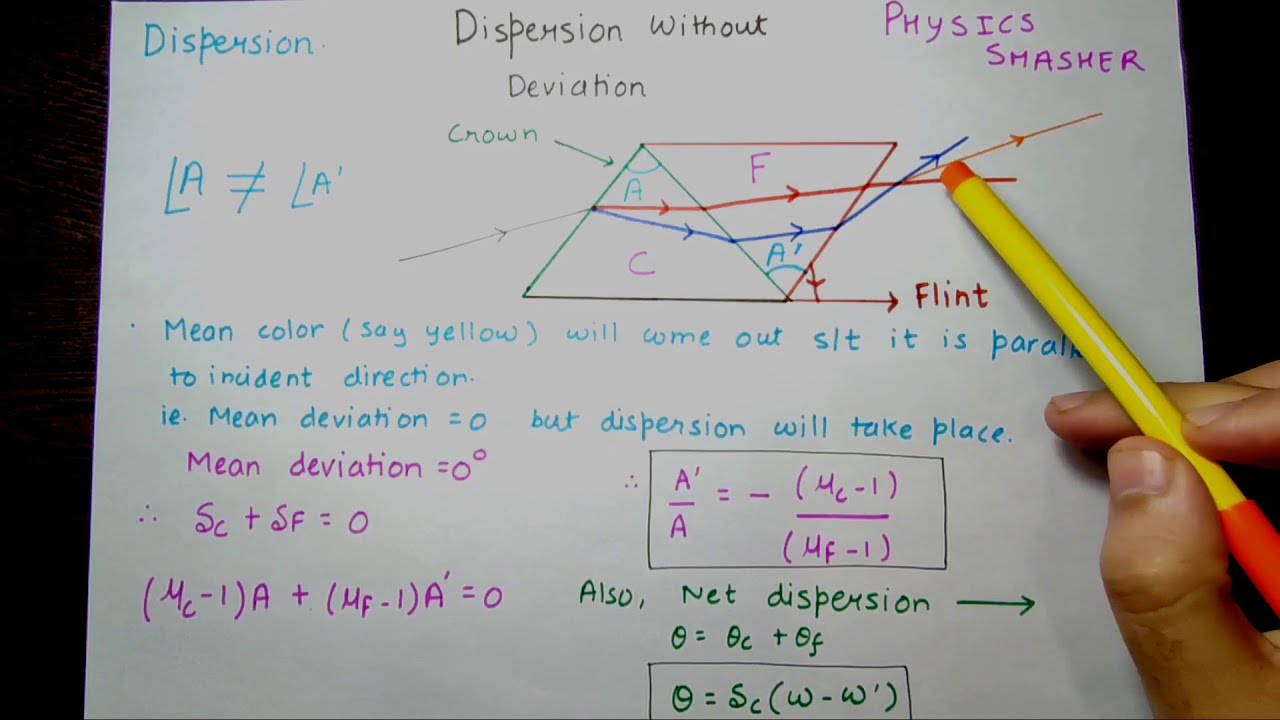 Dispersion.
Dispersion Without
Deviation
PHYSICS
SMASHER
Crown
∠A ≠ ∠A'
A
F
C
A'
Flint
· Mean color (say yellow) will come out s/t it is
to incident direction.
ie. Mean deviation = 0 but dispersion will take place.
Mean deviation = 0°
∴ δc + δF = 0
(μc-1)A + (μF-1)A' = 0
∴ A'/A = - (μc-1)/(μF-1)
Also, Net dispersion →
θ = θc + θf
θ = δc (ω - ω')